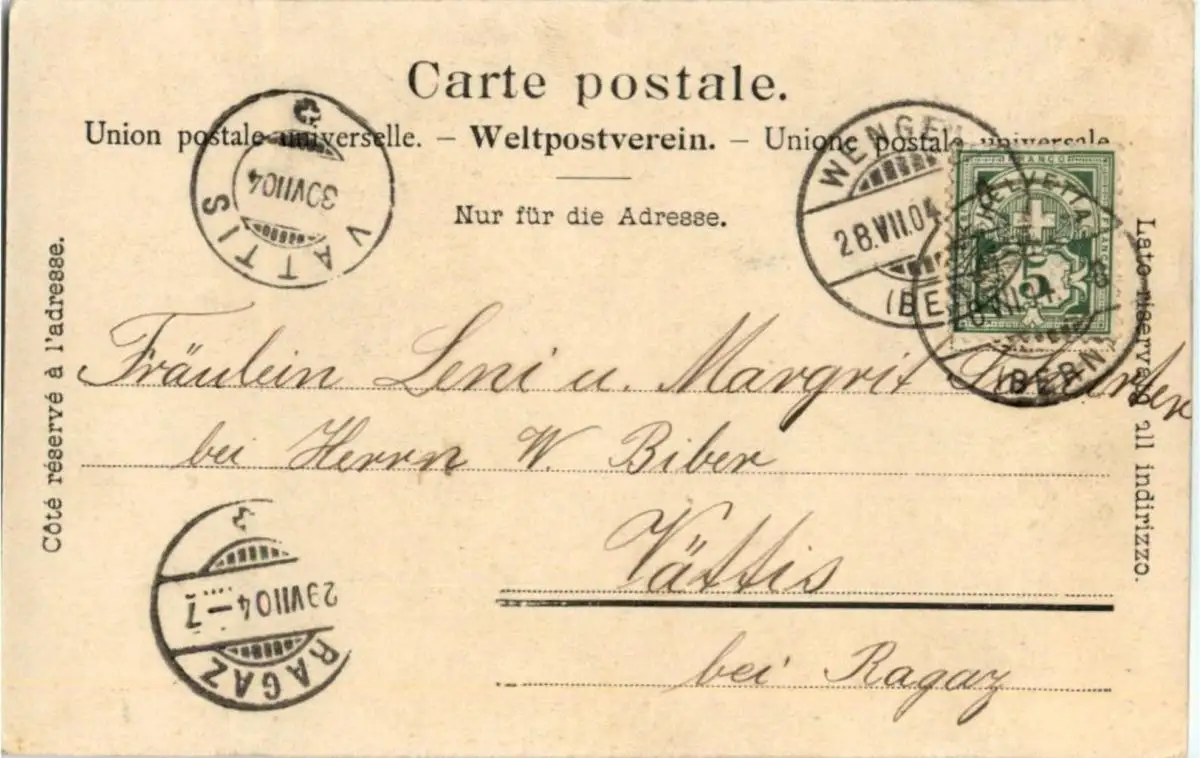 Carte postale.
Union postale universelle. – Weltpostverein. – Unione postale universale
Nur für die Adresse.
Côté réservé à l'adresse.
Lato riservato all indirizzo.
VÄTTIS
30 VII 04
WENGEN
28.VII.04
(BERN)
FRANCO
HELVETIA
5
(BERN)
Fräulein Leni u. Margrit
bei Herrn W. Biber
Vättis
bei Ragaz
RAGAZ
29 VII 04 – 7